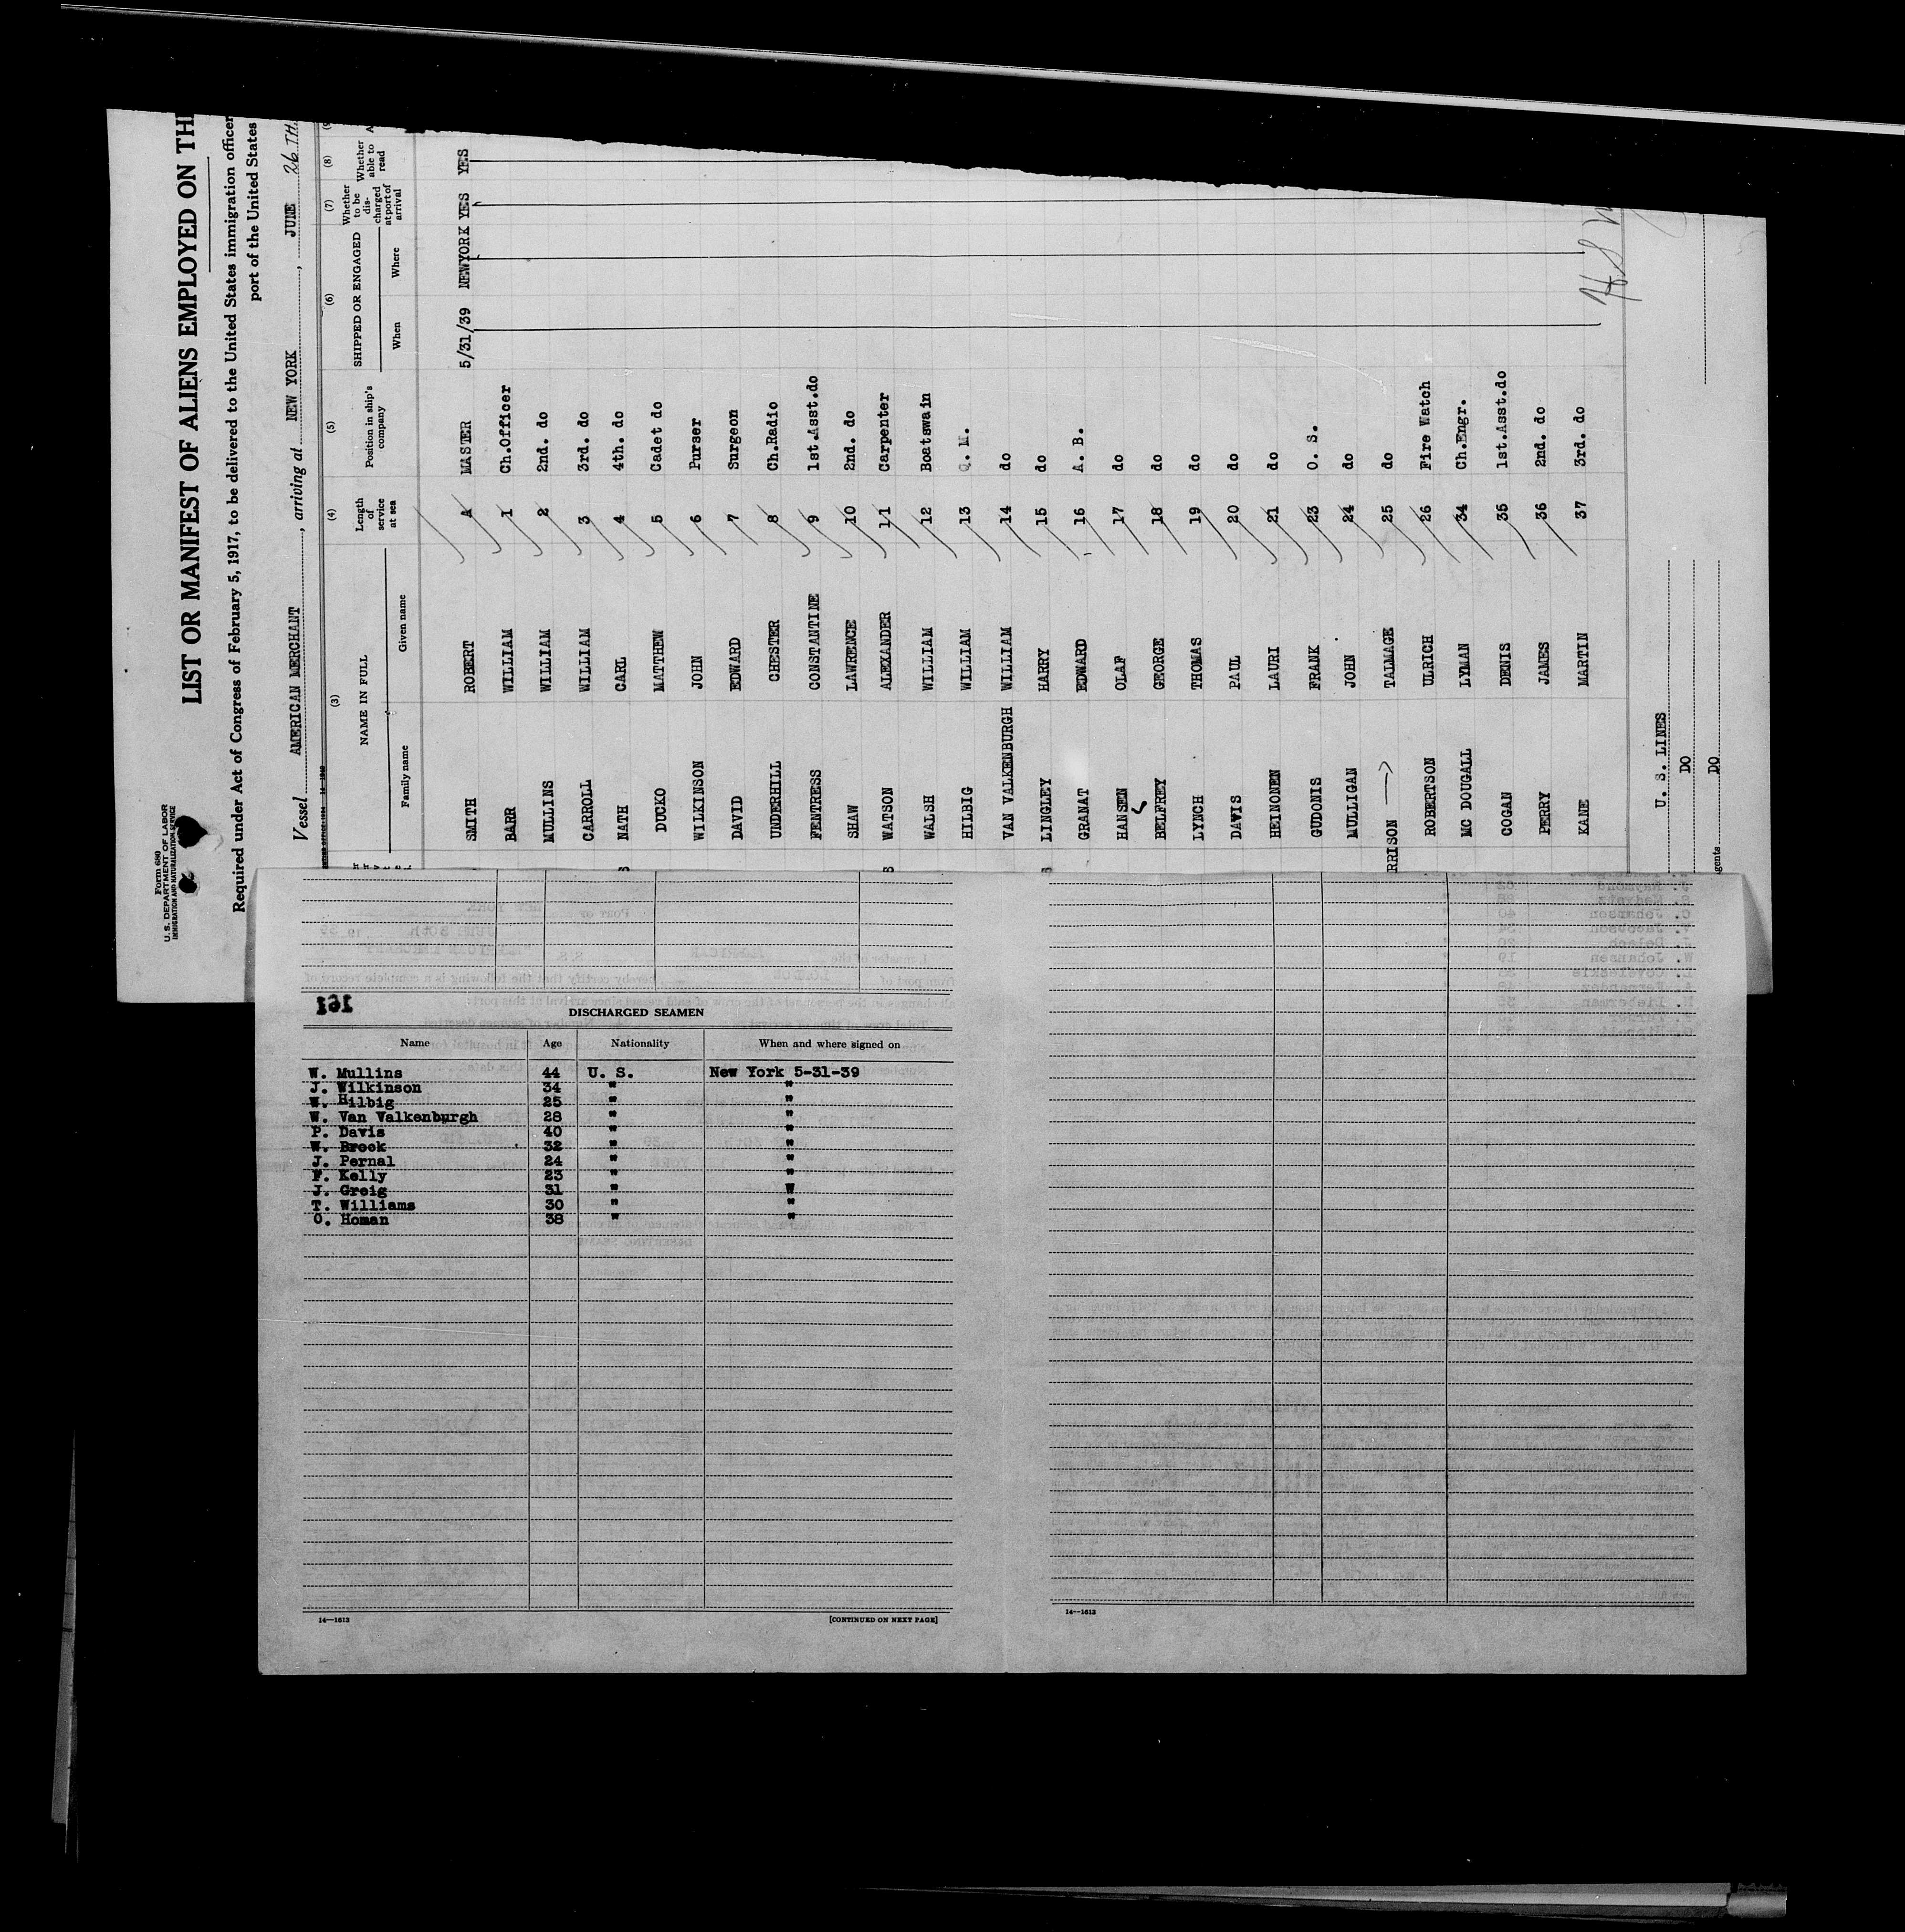 Form 680
U. S. DEPARTMENT OF LABOR
IMMIGRATION AND NATURALIZATION SERVICE
LIST OR MANIFEST OF ALIENS EMPLOYED ON TH
Required under Act of Congress of February 5, 1917, to be delivered to the United States immigration officer
port of the United States
Vessel AMERICAN MERCHANT, arriving at NEW YORK, JUNE 26TH.
(3) (4) (5) (6) (7) (8)
NAME IN FULL Length of service at sea Position in ship's company SHIPPED OR ENGAGED Whether to be discharged at port of arrival Whether able to read
Family name Given name When Where
SMITH ROBERT A MASTER 5/31/39 NEWYORK YES YES
BARR WILLIAM 1 Ch.Officer
MULLINS WILLIAM 2 2nd. do
CARROLL WILLIAM 3 3rd. do
NATH CARL 4 4th. do
DUCKO MATTHEW 5 Cadet do
WILKINSON JOHN 6 Purser
DAVID EDWARD 7 Surgeon
UNDERHILL CHESTER 8 Ch.Radio
FENTRESS CONSTANTINE 9 1st.Asst.do
SHAW LAWRENCE 10 2nd. do
WATSON ALEXANDER 11 Carpenter
WALSH WILLIAM 12 Boatswain
HILBIG WILLIAM 13 Q. M.
VAN VALKENBURGH WILLIAM 14 do
LINGLEY HARRY 15 do
GRANAT EDWARD 16 A. B.
HANSEN OLAF 17 do
BELFREY GEORGE 18 do
LYNCH THOMAS 19 do
DAVIS PAUL 20 do
HEINONEN LAURI 21 do
GUDONIS FRANK 23 O. S.
MULLIGAN JOHN 24 do
RRISON TALMAGE 25 do
ROBERTSON ULRICH 26 Fire Watch
MC DOUGALL LYMAN 34 Ch.Engr.
COGAN DENIS 35 1st.Asst.do
PERRY JAMES 36 2nd. do
KANE MARTIN 37 3rd. do
U. S. LINES
DO
gents DO
161
DISCHARGED SEAMEN
Name Age Nationality When and where signed on
W. Mullins 44 U. S. New York 5-31-39
J. Wilkinson 34 " "
W. Hilbig 25 " "
W. Van Valkenburgh 28 " "
P. Davis 40 " "
W. Brook 32 " "
J. Pernal 24 " "
F. Kelly 23 " "
J. Greig 31 " W
T. Williams 30 " "
O. Homan 38 " "
14—1613 [CONTINUED ON NEXT PAGE]
14—1613